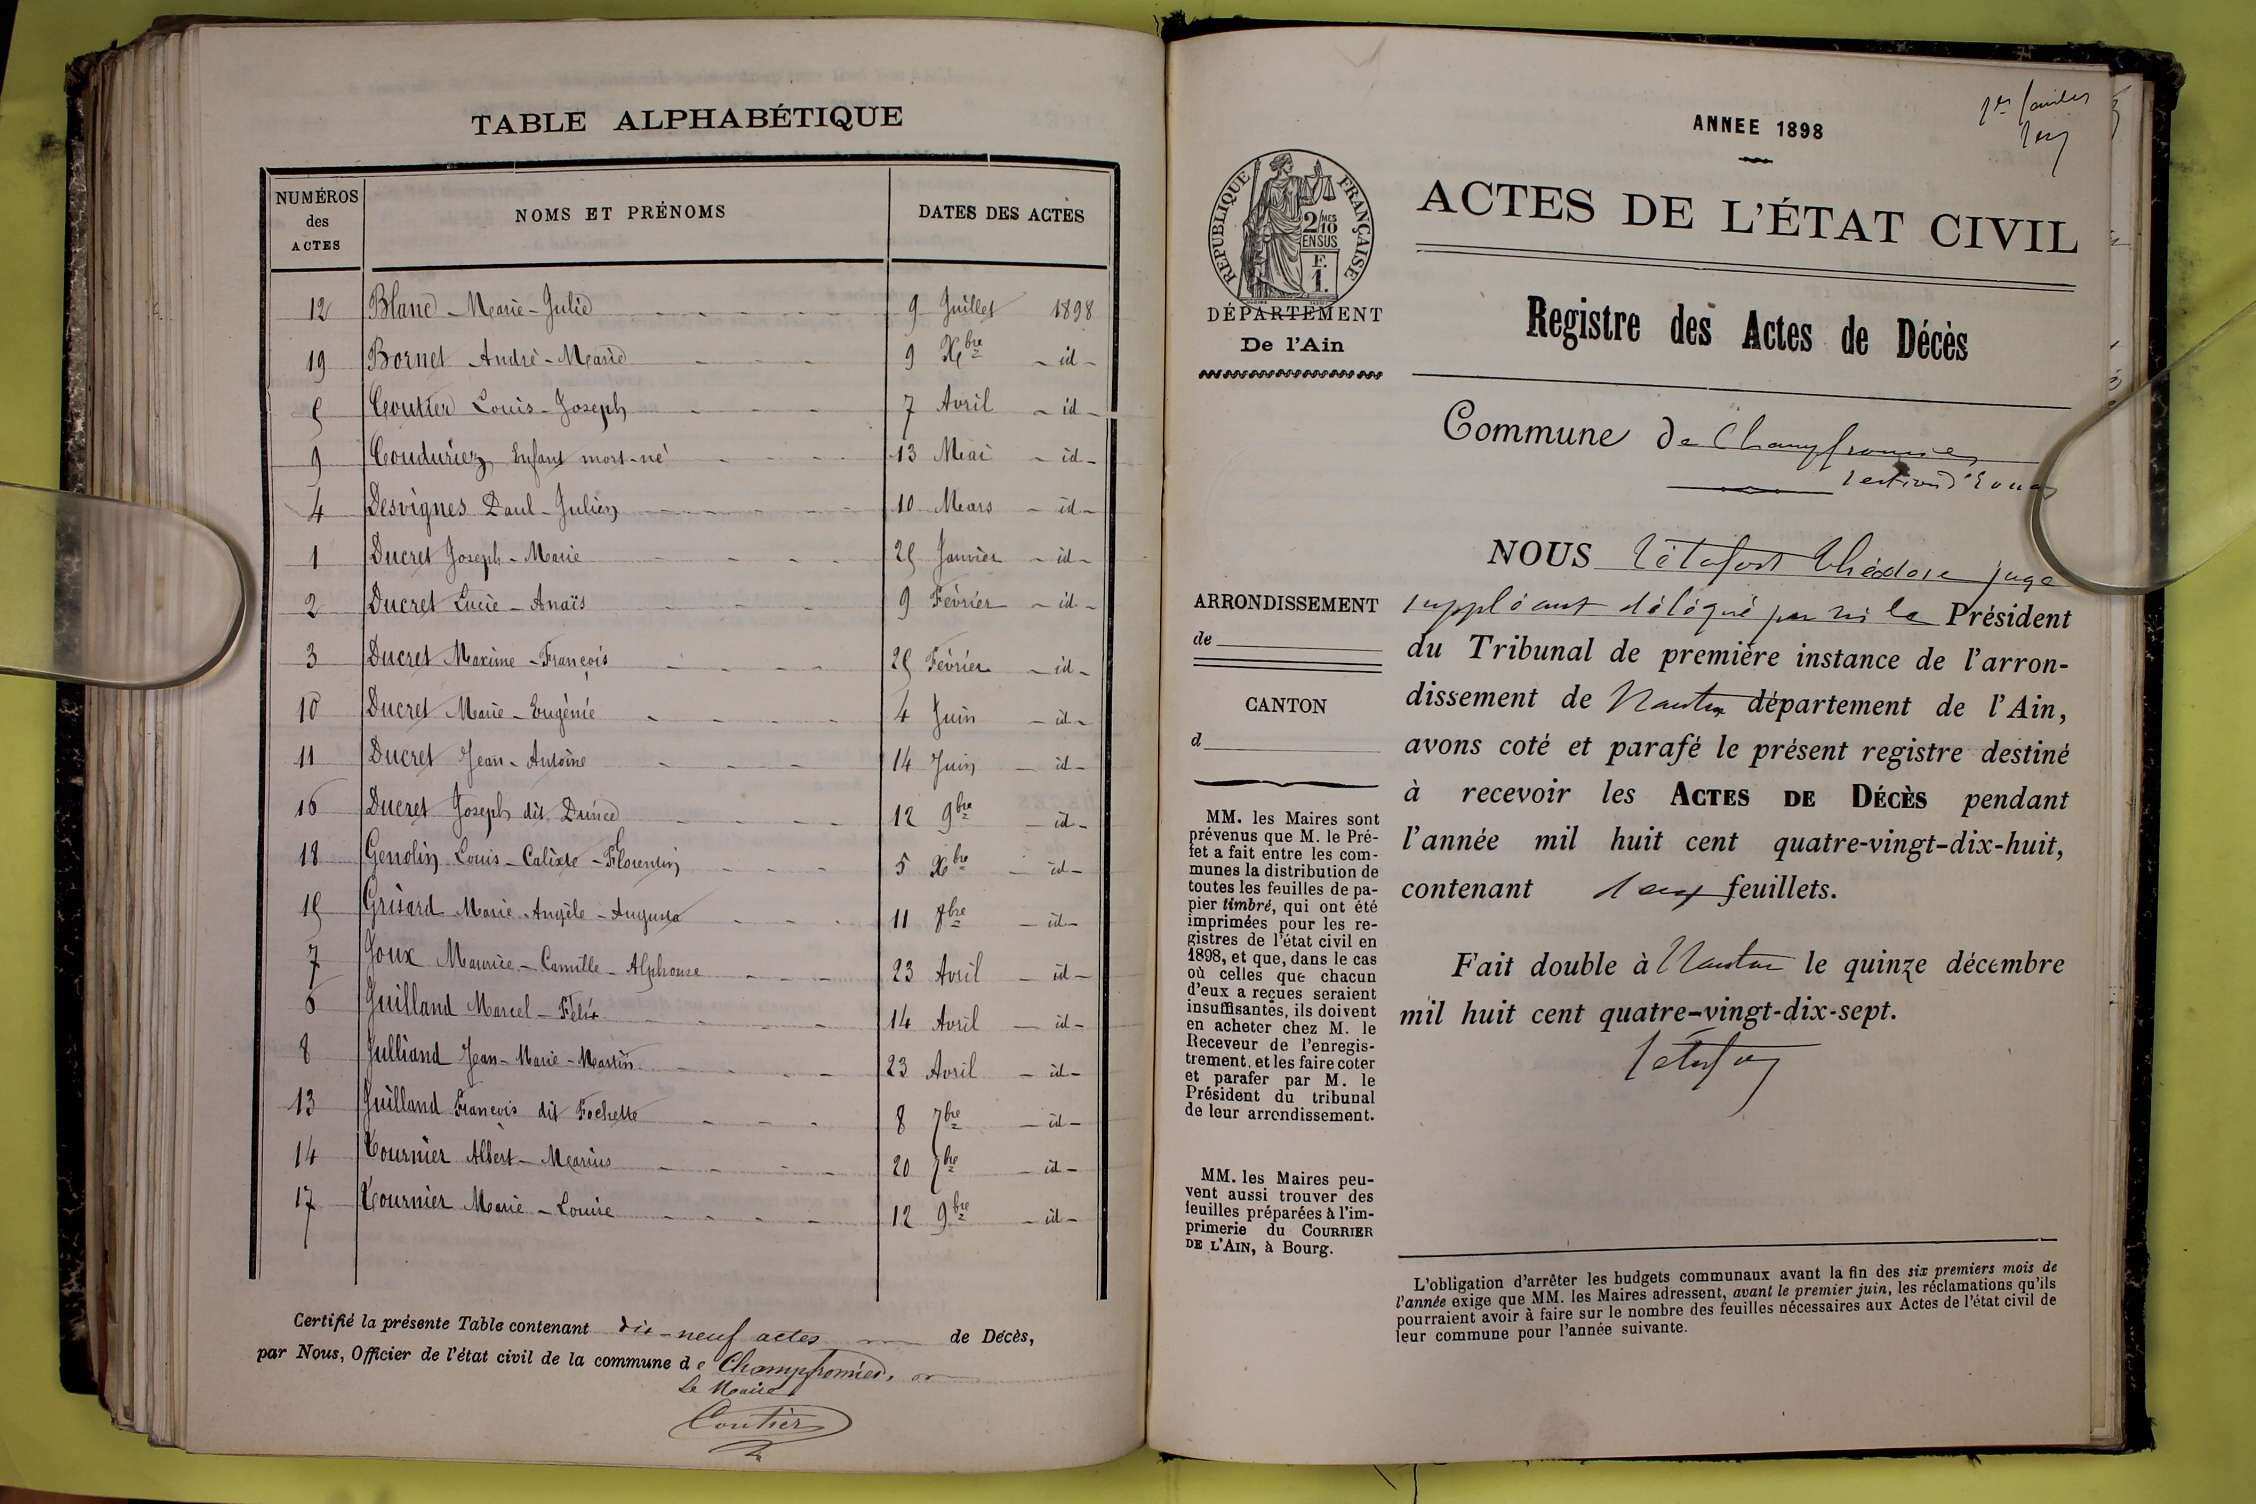 TABLE ALPHABÉTIQUE
NUMÉROS des ACTES NOMS ET PRÉNOMS DATES DES ACTES
12 Blanc - Marie - Julie 9 Juillet 1898
19 Bornet André - Marie 9 Xbre - id -
5 Coutier Louis - Joseph 7 Avril - id -
9 Couduriez Enfant mort-né 13 Mai - id -
4 Desvignes Paul - Julien 10 Mars - id -
1 Ducret Joseph - Marie 25 Janvier - id -
2 Ducret Lucie - Anaïs 9 Février - id -
3 Ducret Maxime - François 25 Février - id -
10 Ducret Marie - Eugénie 4 Juin - id -
11 Ducret Jean - Antoine 14 Juin - id -
16 Ducret Joseph dit Prince 12 9bre - id -
18 Genolin Louis - Calixte - Florentin 5 Xbre - id -
15 Grisard Marie - Angèle - Augusta 11 8bre - id -
7 Joux Maurice - Camille - Alphonse 23 Avril - id -
6 Juilland Marcel - Félix 14 Avril - id -
8 Julliand Jean - Marie - Martin 23 Avril - id -
13 Juilland François dit Fochette 8 7bre - id -
14 Tournier Albert - Marius 20 7bre - id -
17 Tournier Marie - Louise 12 9bre - id -
Certifié la présente Table contenant dix-neuf actes de Décès,
par Nous, Officier de l'état civil de la commune de Champfromier,
Le Maire
Coutier
ANNEE 1898
RÉPUBLIQUE FRANÇAISE
2/10 MES
EN SUS
F.
1.
ACTES DE L'ÉTAT CIVIL
DÉPARTEMENT
De l'Ain
Registre des Actes de Décès
Commune de Champfromier
ARRONDISSEMENT
de
CANTON
d
MM. les Maires sont
prévenus que M. le Pré-
fet a fait entre les com-
munes la distribution de
toutes les feuilles de pa-
pier timbré, qui ont été
imprimées pour les re-
gistres de l'état civil en
1898, et que, dans le cas
où celles que chacun
d'eux a reçues seraient
insuffisantes, ils doivent
en acheter chez M. le
Receveur de l'enregis-
trement, et les faire coter
et parafer par M. le
Président du tribunal
de leur arrondissement.
MM. les Maires peu-
vent aussi trouver des
feuilles préparées à l'im-
primerie du COURRIER
DE L'AIN, à Bourg.
NOUS Théodore juge
suppléant délégué par M. le Président
du Tribunal de première instance de l'arron-
dissement de Nantua département de l'Ain,
avons coté et parafé le présent registre destiné
à recevoir les ACTES DE DÉCÈS pendant
l'année mil huit cent quatre-vingt-dix-huit,
contenant feuillets.
Fait double à Nantua le quinze décembre
mil huit cent quatre-vingt-dix-sept.
L'obligation d'arrêter les budgets communaux avant la fin des six premiers mois de
l'année exige que MM. les Maires adressent, avant le premier juin, les réclamations qu'ils
pourraient avoir à faire sur le nombre des feuilles nécessaires aux Actes de l'état civil de
leur commune pour l'année suivante.